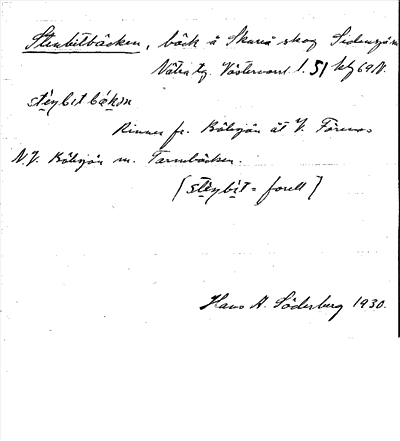 Stenbitbäcken, bäck å Skarså skog Sidensjö sn
Nätra tg. Västernorrl. l. 51 kbl 69 N.
stèynbitbä́kɪn
Rinner fr. Kälsjön åt V. Förenas
N.V. Kälsjön m. Tarmbäcken.
[stèynbit = forell]
Hans A. Söderberg 1930.